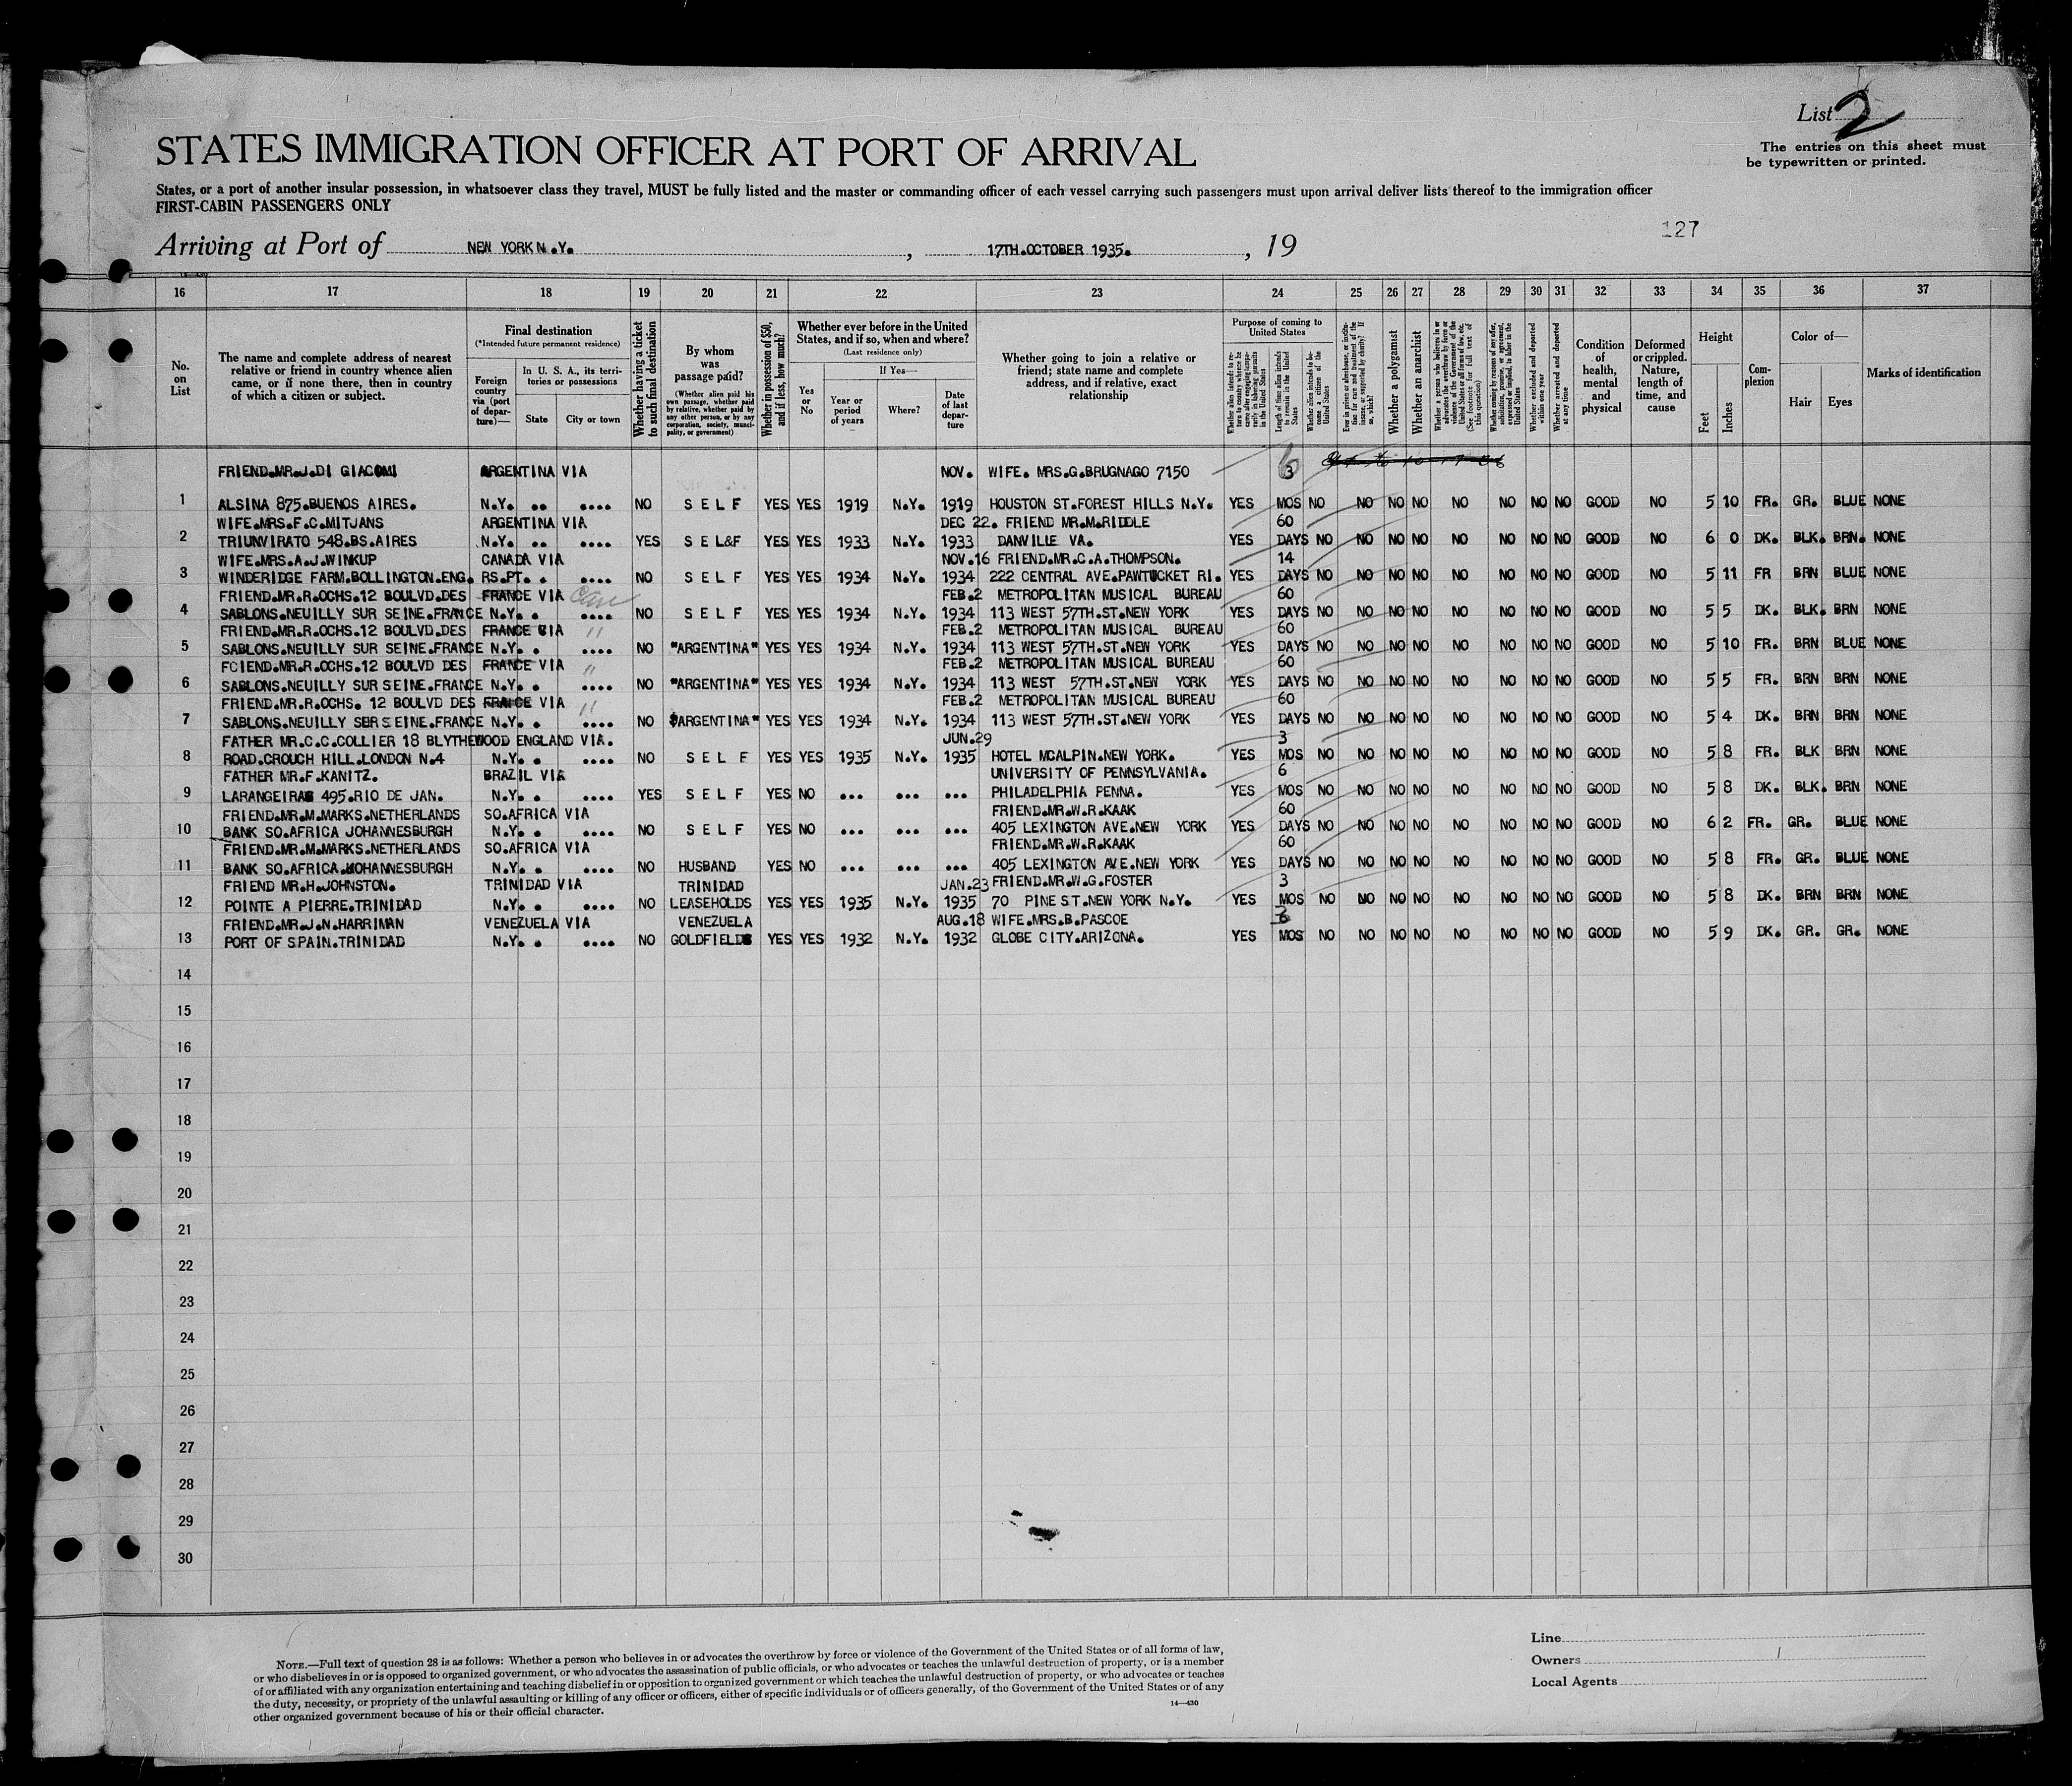 List 2
The entries on this sheet must
be typewritten or printed.
STATES IMMIGRATION OFFICER AT PORT OF ARRIVAL
States, or a port of another insular possession, in whatsoever class they travel, MUST be fully listed and the master or commanding officer of each vessel carrying such passengers must upon arrival deliver lists thereof to the immigration officer
FIRST-CABIN PASSENGERS ONLY
127
Arriving at Port of NEW YORK N.Y. , 17TH.OCTOBER 1935. , 19
16 17 18 19 20 21 22 23 24 25 26 27 28 29 30 31 32 33 34 35 36 37
No. on List
The name and complete address of nearest relative or friend in country whence alien came, or if none there, then in country of which a citizen or subject.
Final destination
(*Intended future permanent residence)
Foreign country via (port of departure)—
In U. S. A., its territories or possessions
State City or town
Whether having a ticket to such final destination
By whom was passage paid?
(Whether alien paid his own passage, whether paid by relative, whether paid by any other person, or by any corporation, society, municipality, or government)
Whether in possession of $50, and if less, how much?
Whether ever before in the United States, and if so, when and where?
(Last residence only)
Yes or No
If Yes—
Year or period of years
Where?
Date of last departure
Whether going to join a relative or friend; state name and complete address, and if relative, exact relationship
Purpose of coming to United States
Whether a polygamist
Whether an anarchist
Condition of health, mental and physical
Deformed or crippled. Nature, length of time, and cause
Height
Feet Inches
Complexion
Color of—
Hair Eyes
Marks of identification
FRIEND.MR.J.DI GIACOMI ARGENTINA VIA NOV. WIFE. MRS.G.BRUGNAGO 7150 6 3
1 ALSINA 875.BUENOS AIRES. N.Y. .. .... NO S E L F YES YES 1919 N.Y. 1919 HOUSTON ST.FOREST HILLS N.Y. YES MOS NO NO NO NO NO NO NO NO GOOD NO 5 10 FR. GR. BLUE NONE
WIFE.MRS.F.C.MITJANS ARGENTINA VIA DEC 22. FRIEND MR.M.RIDDLE 60
2 TRIUNVIRATO 548.BS.AIRES N.Y. .. .... YES S EL&F YES YES 1933 N.Y. 1933 DANVILLE VA. YES DAYS NO NO NO NO NO NO NO NO GOOD NO 6 0 DK. BLK. BRN. NONE
WIFE.MRS.A.J.WINKUP CANADA VIA NOV.16 FRIEND.MR.C.A.THOMPSON. 14
3 WINDERIDGE FARM.BOLLINGTON.ENG. RS.PT. . .... NO S E L F YES YES 1934 N.Y. 1934 222 CENTRAL AVE.PAWTUCKET RI. YES DAYS NO NO NO NO NO NO NO NO GOOD NO 5 11 FR BRN BLUE NONE
FRIEND.MR.R.OCHS.12 BOULVD.DES FRANCE VIA FEB.2 METROPOLITAN MUSICAL BUREAU 60
4 SABLONS.NEUILLY SUR SEINE.FRANCE N.Y. . .... NO S E L F YES YES 1934 N.Y. 1934 113 WEST 57TH.ST.NEW YORK YES DAYS NO NO NO NO NO NO NO NO GOOD NO 5 5 DK. BLK. BRN NONE
FRIEND.MR.R.OCHS.12 BOULVD.DES FRANCE VIA " FEB.2 METROPOLITAN MUSICAL BUREAU 60
5 SABLONS.NEUILLY SUR SEINE.FRANCE N.Y. . .... NO "ARGENTINA" YES YES 1934 N.Y. 1934 113 WEST 57TH.ST.NEW YORK YES DAYS NO NO NO NO NO NO NO NO GOOD NO 5 10 FR. BRN BLUE NONE
FCIEND.MR.R.OCHS.12 BOULVD DES FRANCE VIA " FEB.2 METROPOLITAN MUSICAL BUREAU 60
6 SABLONS.NEUILLY SUR SEINE.FRANCE N.Y. . .... NO "ARGENTINA" YES YES 1934 N.Y. 1934 113 WEST 57TH.ST.NEW YORK YES DAYS NO NO NO NO NO NO NO NO GOOD NO 5 5 FR. BRN BRN NONE
FRIEND.MR.R.OCHS. 12 BOULVD DES FRANCE VIA " FEB.2 METROPOLITAN MUSICAL BUREAU 60
7 SABLONS.NEUILLY SUR SEINE.FRANCE N.Y. . .... NO "ARGENTINA" YES YES 1934 N.Y. 1934 113 WEST 57TH.ST.NEW YORK YES DAYS NO NO NO NO NO NO NO NO GOOD NO 5 4 DK. BRN BRN NONE
FATHER MR.C.C.COLLIER 18 BLYTHEWOOD ENGLAND VIA. JUN.29 3
8 ROAD.CROUCH HILL.LONDON N.4 N.Y. . .... NO S E L F YES YES 1935 N.Y. 1935 HOTEL MCALPIN.NEW YORK. YES MOS NO NO NO NO NO NO NO NO GOOD NO 5 8 FR. BLK BRN NONE
FATHER MR.F.KANITZ. BRAZIL VIA UNIVERSITY OF PENNSYLVANIA. 6
9 LARANGEIRAS 495.RIO DE JAN. N.Y. . .... YES S E L F YES NO ... ... ... PHILADELPHIA PENNA. YES MOS NO NO NO NO NO NO NO NO GOOD NO 5 8 DK. BLK. BRN NONE
FRIEND.MR.M.MARKS.NETHERLANDS SO.AFRICA VIA FRIEND.MR.W.R.KAAK 60
10 BANK SO.AFRICA JOHANNESBURGH N.Y. . .... NO S E L F YES NO ... ... ... 405 LEXINGTON AVE.NEW YORK YES DAYS NO NO NO NO NO NO NO NO GOOD NO 6 2 FR. GR. BLUE NONE
FRIEND.MR.M.MARKS.NETHERLANDS SO.AFRICA VIA FRIEND.MR.W.R.KAAK 60
11 BANK SO.AFRICA.JOHANNESBURGH N.Y. . .... NO HUSBAND YES NO ... ... ... 405 LEXINGTON AVE.NEW YORK YES DAYS NO NO NO NO NO NO NO NO GOOD NO 5 8 FR. GR. BLUE NONE
FRIEND MR.H.JOHNSTON. TRINIDAD VIA TRINIDAD JAN.23 FRIEND.MR.W.G.FOSTER 3
12 POINTE A PIERRE.TRINIDAD N.Y. . .... NO LEASEHOLDS YES YES 1935 N.Y. 1935 70 PINE ST.NEW YORK N.Y. YES MOS NO NO NO NO NO NO NO NO GOOD NO 5 8 DK. BRN BRN NONE
FRIEND.MR.J.N.HARRIMAN VENEZUELA VIA VENEZUELA AUG.18 WIFE.MRS.B.PASCOE
13 PORT OF SPAIN.TRINIDAD N.Y. . .... NO GOLDFIELDS YES YES 1932 N.Y. 1932 GLOBE CITY.ARIZONA. YES MOS NO NO NO NO NO NO NO NO GOOD NO 5 9 DK. GR. GR. NONE
14
15
16
17
18
19
20
21
22
23
24
25
26
27
28
29
30
Line
Owners
Local Agents
NOTE.—Full text of question 28 is as follows: Whether a person who believes in or advocates the overthrow by force or violence of the Government of the United States or of all forms of law,
or who disbelieves in or is opposed to organized government, or who advocates the assassination of public officials, or who advocates or teaches the unlawful destruction of property, or is a member
of or affiliated with any organization entertaining and teaching disbelief in or opposition to organized government or which teaches the unlawful destruction of property, or who advocates or teaches
the duty, necessity, or propriety of the unlawful assaulting or killing of any officer or officers, either of specific individuals or of officers generally, of the Government of the United States or of any
other organized government because of his or their official character.
14—430